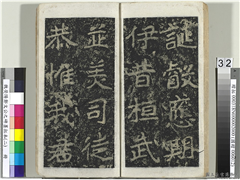 誕叡應期
伊昔桓武
並美司徒
恭惟我君
32